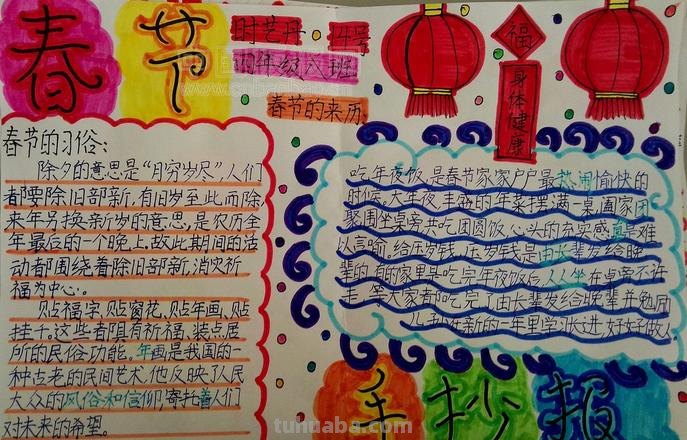 春节
时艺丹 4号
四年级六班
春节的来历:
福
身体健康
春节的习俗:
除夕的意思是“月穷岁尽”,人们
都要除旧部新,有旧岁至此而除,
来年另换新岁的意思,是农历全
年最后的一个晚上,故此期间的活
动都围绕着除旧部新,消灾祈
福为中心。
贴福字,贴窗花,贴年画,贴
挂千。这些者阻有祈福、装点居
所的民俗功能。年画是我国的一
种古老的民间艺术,他反映了人民
大众的风俗和信仰,寄托着人们
对未来的希望。
吃年夜饭,是春节家家户户最热闹愉快的
时候。大年夜,丰盛的年菜摆满一桌,阖家团
聚,围坐桌旁,共吃团圆饭,心头的充实感真是难
以言喻。给压岁钱,压岁钱是由长辈发给晚
辈的,有的家里是吃完年夜饭后,人人坐在桌旁不许
走,等大家都吃完了,由长辈发给晚辈,并勉励
儿孙在新的一年里学习长进,好好做人。
手抄报
tuhuaba.com